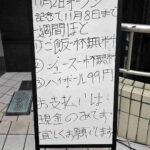 11月2日オープン
記念て11月8日まで
一週間ほど
①ご飯一杯無料
②ジュース一杯無料
③ハイボール99円
お支払いは
現金のみです
宜しくお願いします